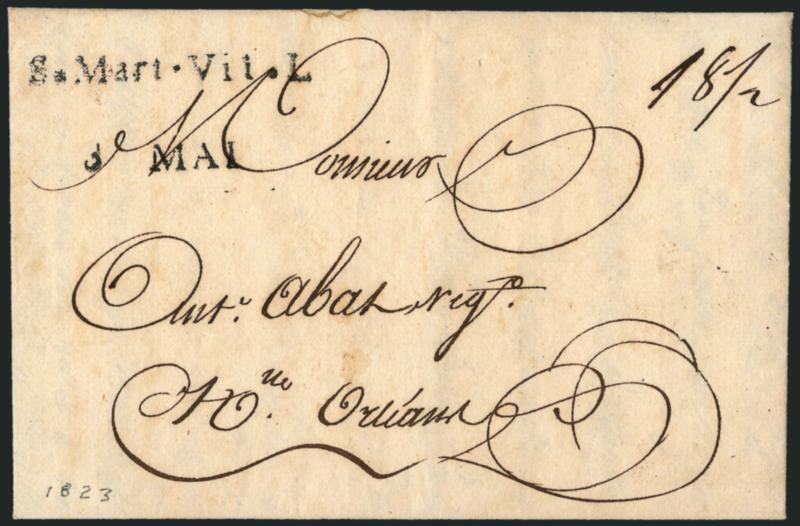 S.Mart.Vil.L
18/2
5 MAI
Monsieur
Ant. Abat Neg.
N.lle Orléans
1823